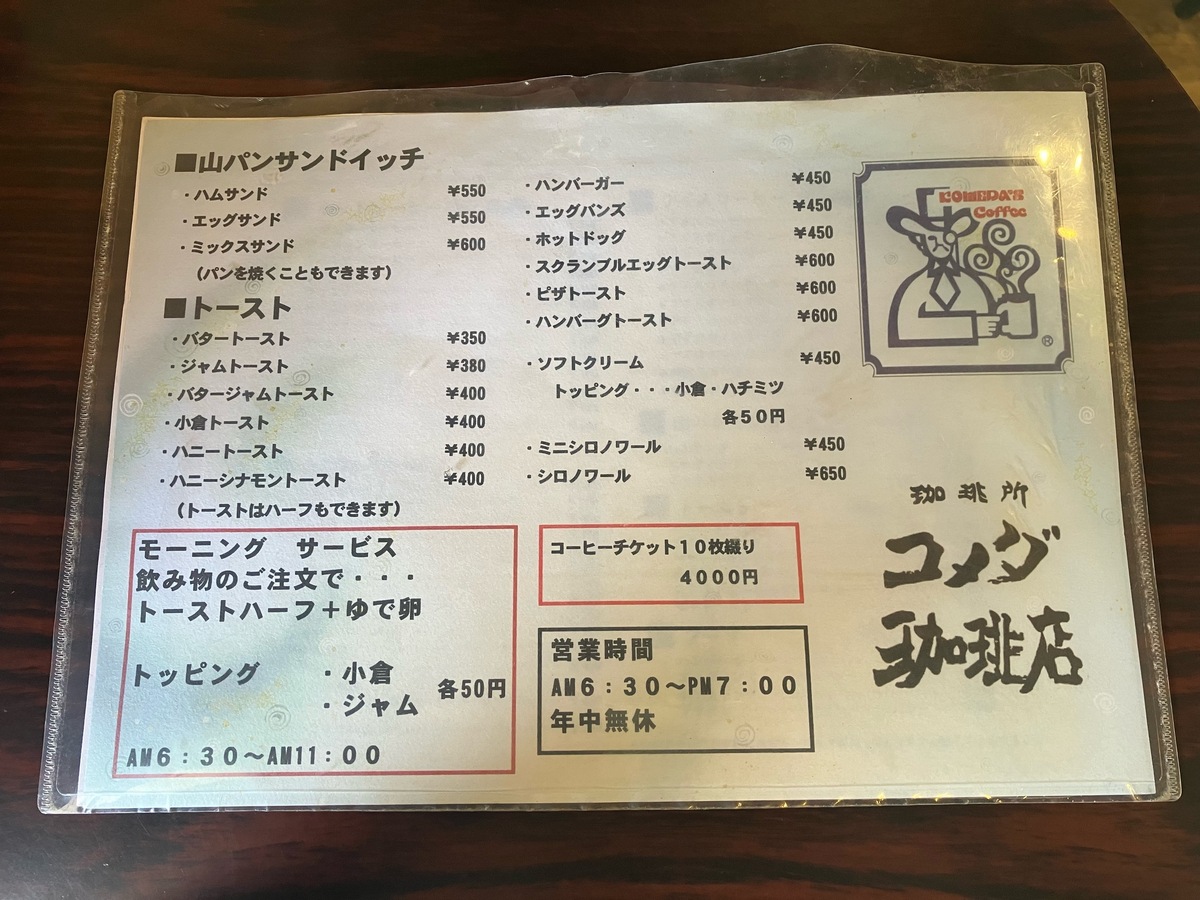 ■山パンサンドイッチ
・ハムサンド ¥550
・エッグサンド ¥550
・ミックスサンド ¥600
(パンを焼くこともできます)
■トースト
・バタートースト ¥350
・ジャムトースト ¥380
・バタージャムトースト ¥400
・小倉トースト ¥400
・ハニートースト ¥400
・ハニーシナモントースト ¥400
(トーストはハーフもできます)
モーニング サービス
飲み物のご注文で・・・
トーストハーフ+ゆで卵
トッピング ・小倉
・ジャム 各50円
AM6:30～AM11:00
・ハンバーガー ¥450
・エッグバンズ ¥450
・ホットドッグ ¥450
・スクランブルエッグトースト ¥600
・ピザトースト ¥600
・ハンバーグトースト ¥600
・ソフトクリーム ¥450
トッピング・・・小倉・ハチミツ
各50円
・ミニシロノワール ¥450
・シロノワール ¥650
コーヒーチケット10枚綴り
4000円
営業時間
AM6:30～PM7:00
年中無休
KOMEDA'S
Coffee
®
珈琲所
コメダ
珈琲店